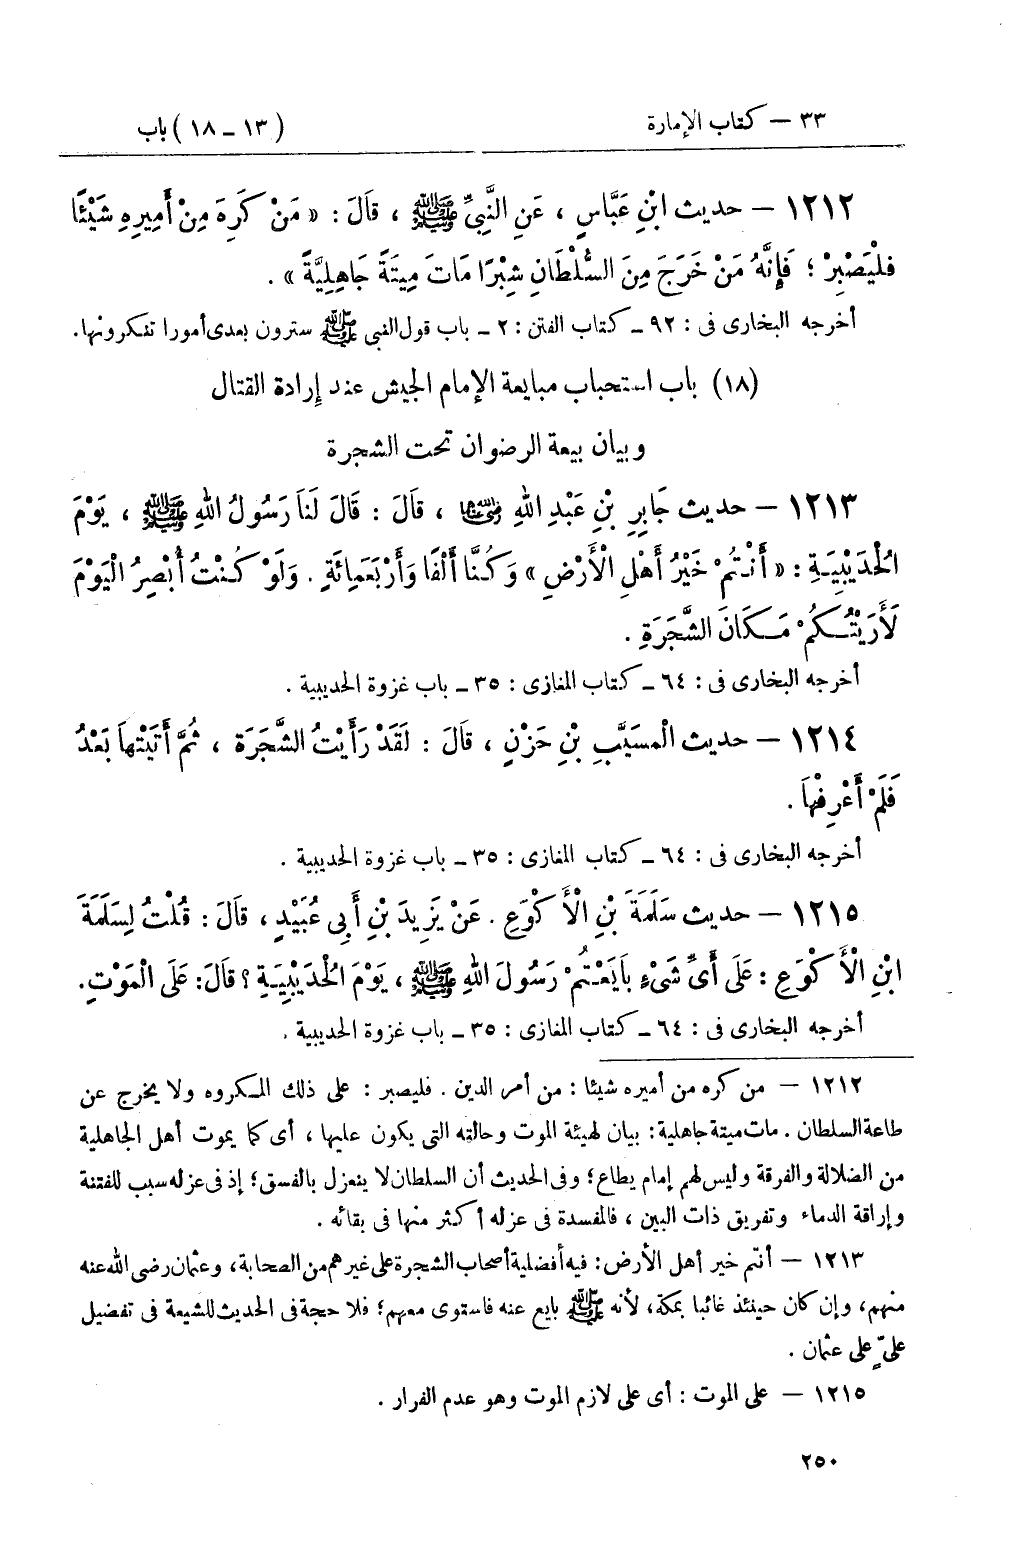 ٣٣ – كتاب الإمارة (١٣ – ١٨) باب
١٢١٢ – حديث ابْنِ عَبَّاسٍ ، عَنِ النَّبِيِّ ﷺ ، قَالَ : « مَنْ كَرِهَ مِنْ أَمِيرِهِ شَيْئًا
فَلْيَصْبِرْ ؛ فَإِنَّهُ مَنْ خَرَجَ مِنَ السُّلْطَانِ شِبْرًا مَاتَ مِيتَةً جَاهِلِيَّةً » .
أخرجه البخارى فى : ٩٢ – كتاب الفتن : ٢ – باب قول النبى ﷺ سترون بعدى أمورا تنكرونها.
(١٨) باب استحباب مبايعة الإمام الجيش عند إرادة القتال
وبيان بيعة الرضوان تحت الشجرة
١٢١٣ – حديث جَابِرِ بْنِ عَبْدِ اللهِ رضي الله عنهما ، قَالَ : قَالَ لَنَا رَسُولُ اللهِ ﷺ ، يَوْمَ
الْحُدَيْبِيَةِ : « أَنْتُمْ خَيْرُ أَهْلِ الْأَرْضِ » وَكُنَّا أَلْفًا وَأَرْبَعَمِائَةٍ . وَلَوْ كُنْتُ أُبْصِرُ الْيَوْمَ
لَأَرَيْتُكُمْ مَكَانَ الشَّجَرَةِ .
أخرجه البخارى فى : ٦٤ – كتاب المغازى : ٣٥ – باب غزوة الحديبية .
١٢١٤ – حديث الْمسَيَّبِ بْنِ حَزْنٍ ، قَالَ : لَقَدْ رَأَيْتُ الشَّجَرَةَ ، ثُمَّ أَتَيْتُهاَ بَعْدُ
فَلَمْ أَعْرِفْهاَ .
أخرجه البخارى فى : ٦٤ – كتاب المغازى : ٣٥ – باب غزوة الحديبية .
١٢١٥ – حديث سَلَمَةَ بْنِ الْأَكْوَعِ . عَنْ يَزِيدَ بْنِ أَبِى عُبَيْدٍ ، قَالَ : قُلْتُ لِسَلَمَةَ
ابْنِ الْأَكْوَعِ : عَلَى أَىِّ شَىْءٍ بَايَعْتُمْ رَسُولَ اللهِ ﷺ ، يَوْمَ الْحُدَيْبِيَةِ ؟ قَالَ : عَلَى الْمَوْتِ.
أخرجه البخارى فى : ٦٤ – كتاب المغازى : ٣٥ – باب غزوة الحديبية .
١٢١٢ – من كره من أميره شيئا : من أمر الدين . فليصبر : على ذلك المكروه ولا يخرج عن
طاعة السلطان . مات ميتة جاهلية : بيان لهيئة الموت وحالته التى يكون عليها ، أى كما يموت أهل الجاهلية
من الضلالة والفرقة وليس لهم إمام يطاع ؛ وفى الحديث أن السلطان لا ينعزل بالفسق ؛ إذ فى عزله سبب للفتنة
وإراقة الدماء وتفريق ذات البين ، فالمفسدة فى عزله أكثر منها فى بقائه .
١٢١٣ – أنتم خير أهل الأرض : فيه أفضلية أصحاب الشجرة على غيرهم من الصحابة ، وعثمان رضى الله عنه
منهم ، وإن كان حينئذ غائبا بمكة ، لأنه ﷺ بايع عنه فاستوى معهم ؛ فلا حجة فى الحديث للشيعة فى تفضيل
علىّ على عثمان .
١٢١٥ – على الموت : أى على لازم الموت وهو عدم الفرار .
٢٥٠